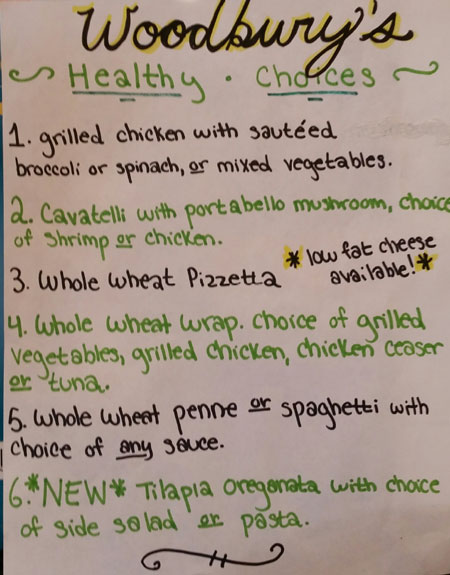 Woodbury's
Healthy · Choices
1. grilled chicken with sautéed
broccoli or spinach, or mixed vegetables.
2. Cavatelli with portabello mushroom, choice
of shrimp or chicken.
3. Whole wheat Pizzetta
*low fat cheese
available!*
4. Whole wheat wrap. choice of grilled
vegetables, grilled chicken, chicken ceaser
or tuna.
5. Whole wheat penne or spaghetti with
choice of any sauce.
6.*NEW* Tilapia oregonata with choice
of side salad or pasta.